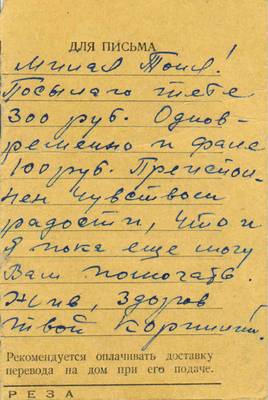 ДЛЯ ПИСЬМА
Милая Тоня!
Посылаю тебе
300 руб. Однов-
ременно и Фане
100 руб. Преиспол-
нен чувством
радости, что и
я пока еще могу
Вам помогать.
Жив, здоров
твой
Рекомендуется оплачивать доставку
перевода на дом при его подаче.
РЕЗА